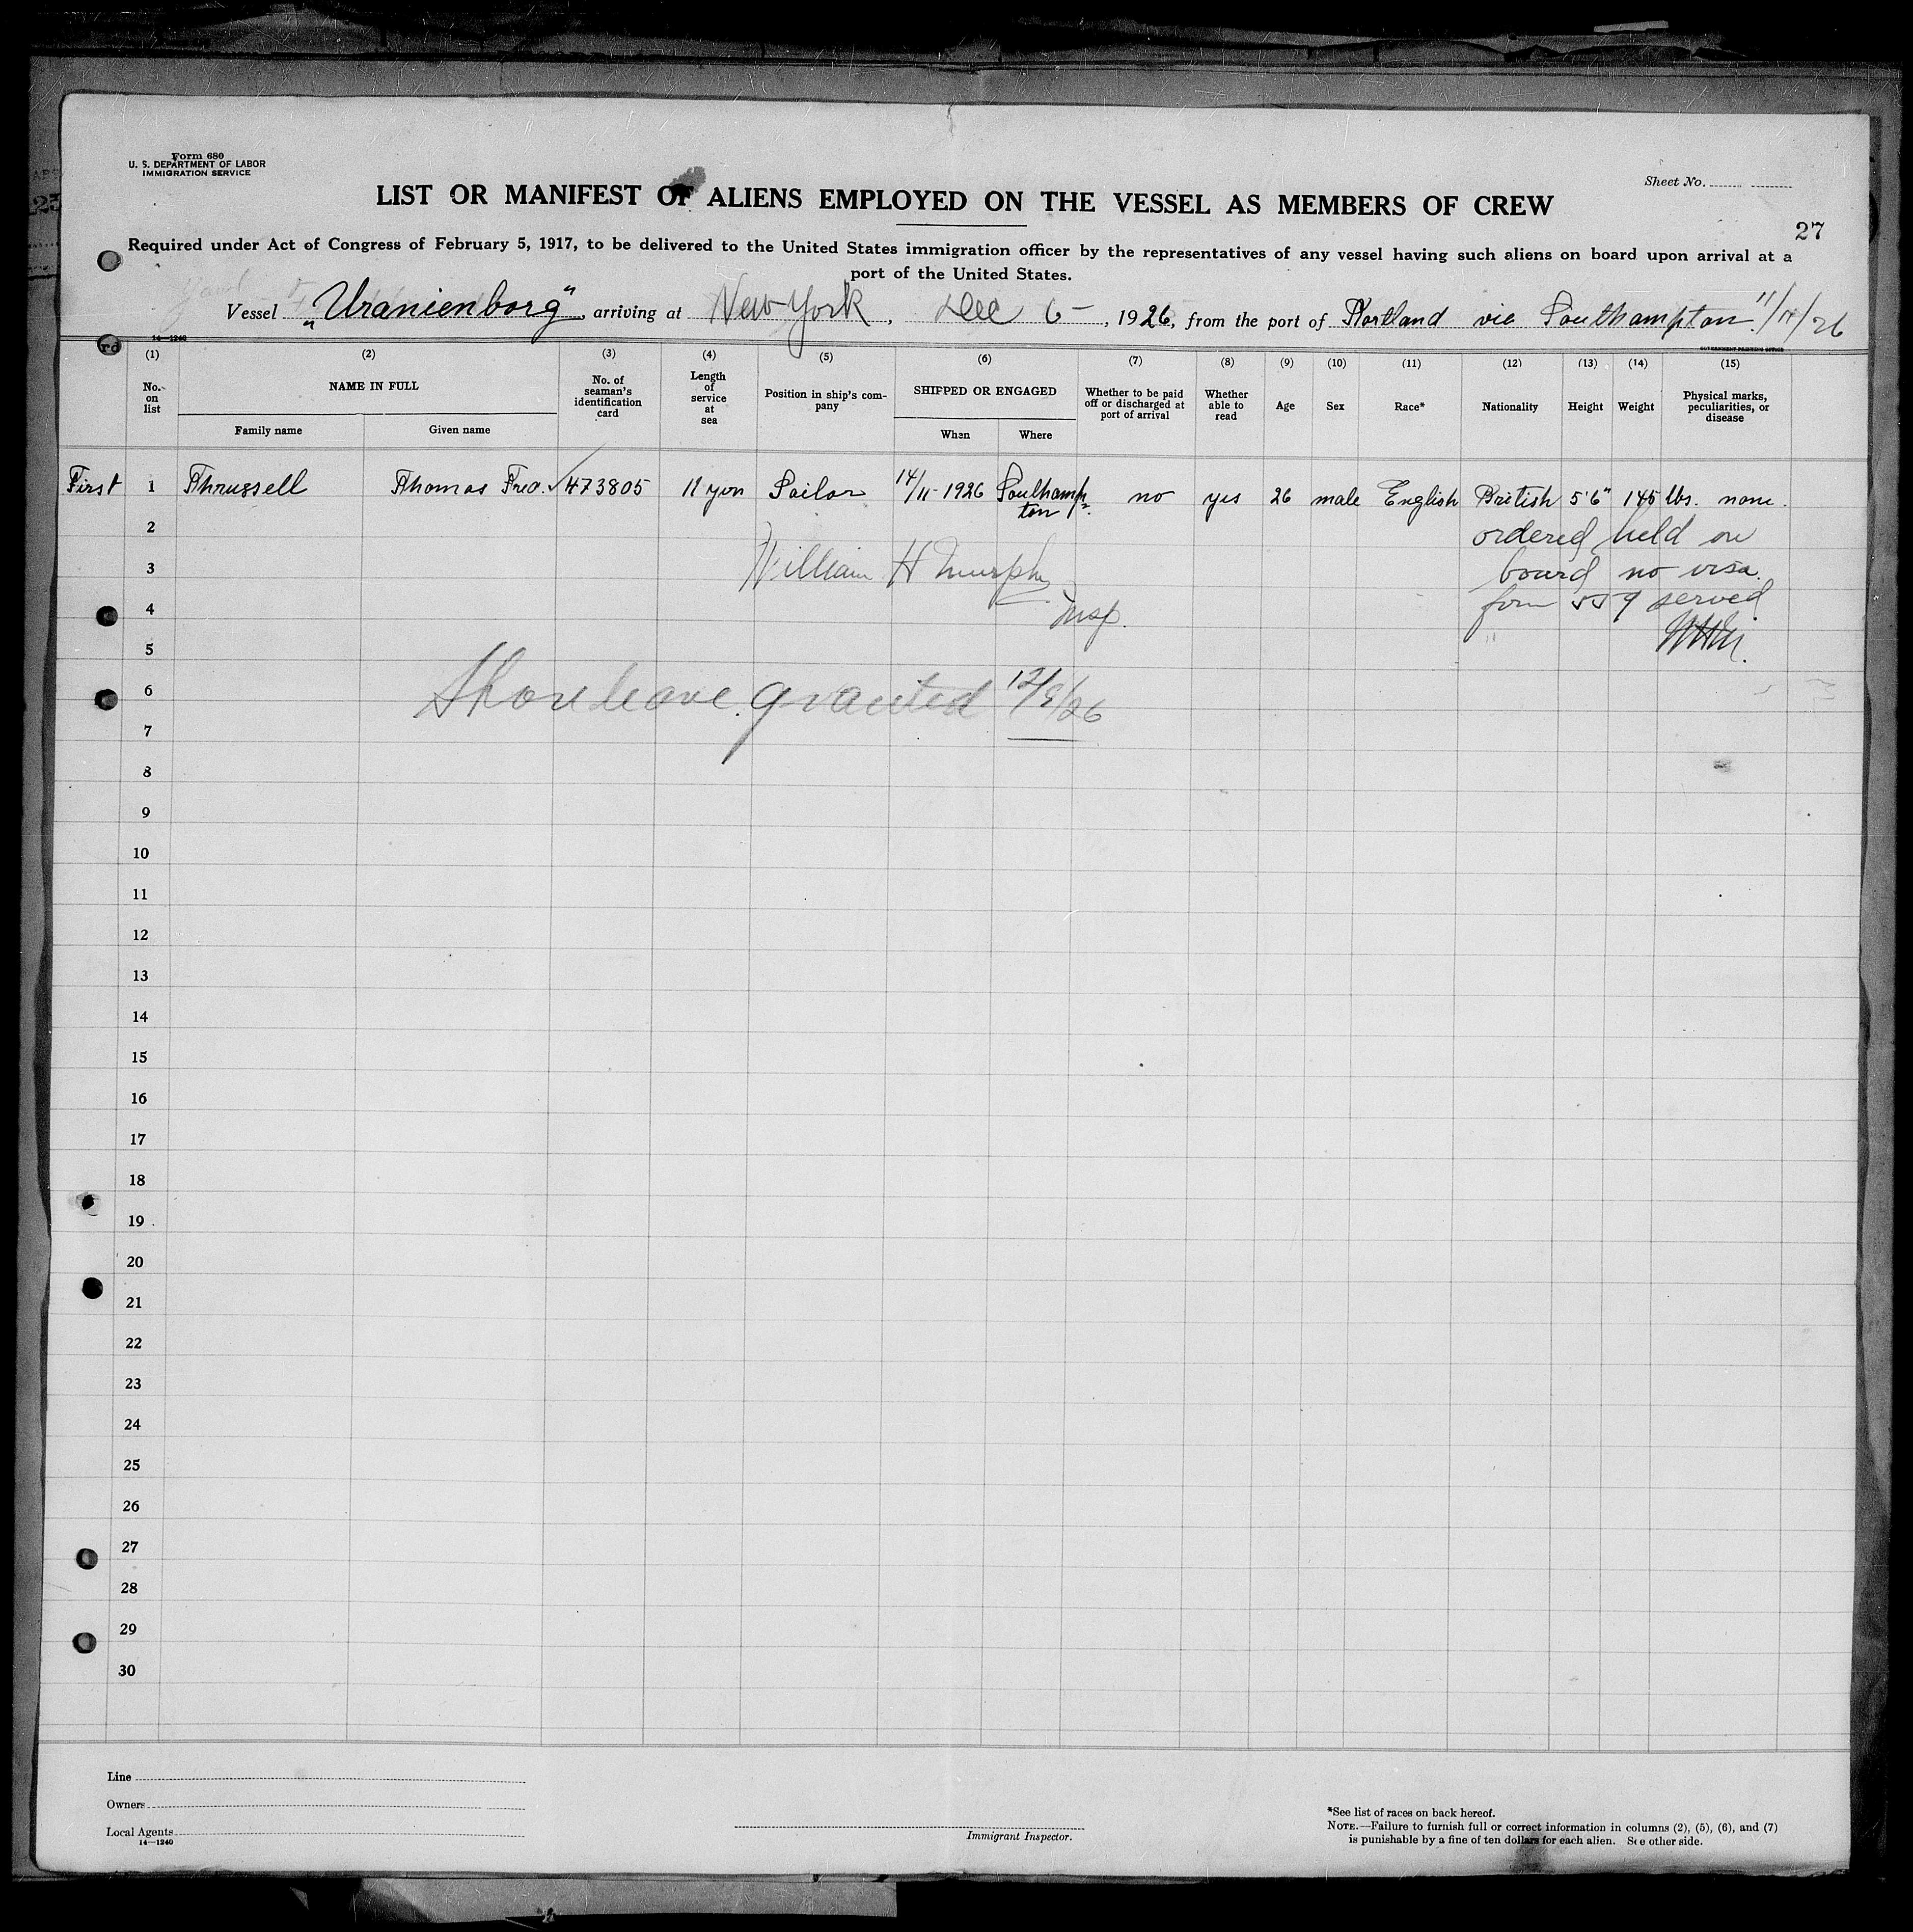 Form 680
U. S. DEPARTMENT OF LABOR
IMMIGRATION SERVICE
Sheet No.
LIST OR MANIFEST OF ALIENS EMPLOYED ON THE VESSEL AS MEMBERS OF CREW
27
Required under Act of Congress of February 5, 1917, to be delivered to the United States immigration officer by the representatives of any vessel having such aliens on board upon arrival at a
port of the United States.
Vessel "Uranienborg", arriving at New York, Dec 6, 1926, from the port of Portland via Southampton 11/14/26
14—1240
GOVERNMENT PRINTING OFFICE
(1) (2) (3) (4) (5) (6) (7) (8) (9) (10) (11) (12) (13) (14) (15)
No. on list
NAME IN FULL
Family name
Given name
No. of seaman's identification card
Length of service at sea
Position in ship's company
SHIPPED OR ENGAGED
When
Where
Whether to be paid off or discharged at port of arrival
Whether able to read
Age
Sex
Race*
Nationality
Height
Weight
Physical marks, peculiarities, or disease
First 1 Thrussell Thomas Fred. 473805 11 Sailor 14/11-1926 Southampton no yes 26 male English British 5'6" 145 lbs. none.
2 ordered held on
3 William H Murphy board no visa.
4 Insp. form 559 served
5 WHM.
6 Shore leave granted 12/8/26
7
8
9
10
11
12
13
14
15
16
17
18
19
20
21
22
23
24
25
26
27
28
29
30
Line
Owners
Local Agents
14—1240
Immigrant Inspector.
*See list of races on back hereof.
NOTE.—Failure to furnish full or correct information in columns (2), (5), (6), and (7)
is punishable by a fine of ten dollars for each alien. See other side.